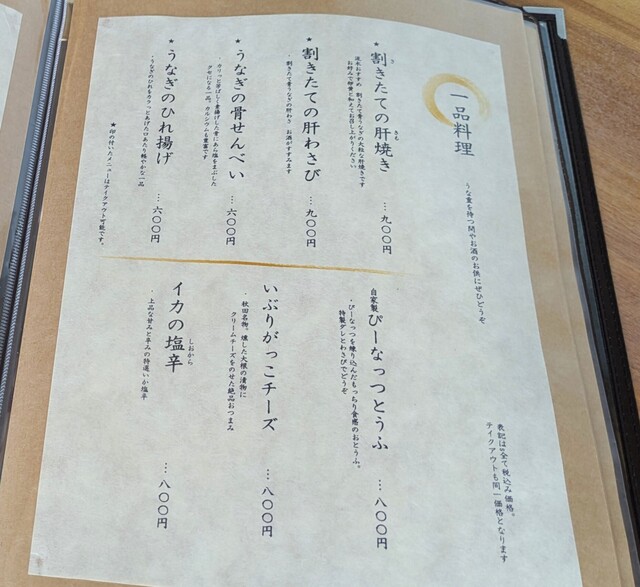 一品料理
うな重を待つ間やお酒のお供にぜひどうぞ
★割きたての肝焼き
きも
流水おすすめ 割きたて青うなぎの大粒な肝焼きです
お好みで卵黄と和えてお召し上がりください
…九〇〇円
★割きたての肝わさび
・割きたて青うなぎの肝わさ お酒がすすみます
…九〇〇円
★うなぎの骨せんべい
カリッと芳ばしく素揚げした骨にあら塩をまぶした
クセになる一品。カルシウムも豊富です
…六〇〇円
★うなぎのひれ揚げ
・うなぎのひれをカラっとあげた口あたり軽やかな一品
…六〇〇円
★印の付いたメニューはテイクアウト可能です。
自家製ぴーなっつとうふ
・ぴーなっつを練り込んだもっちり食感のおとうふ。
特製ダレとわさびでどうぞ
…八〇〇円
いぶりがっこチーズ
・秋田名物、燻した大根の漬物に
クリームチーズをのせた絶品おつまみ
…八〇〇円
イカの塩辛
しおから
・上品な甘みと辛みの特選いか塩辛
…八〇〇円
表記は全て税込み価格。
テイクアウトも同一価格となります